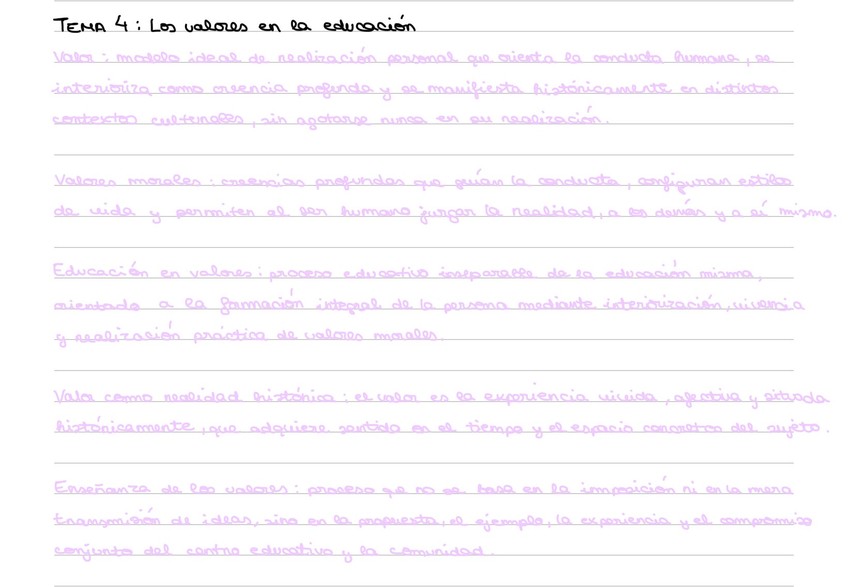 TEMA 4: Los valores en la educación
Valor: modelo ideal de realización personal que orienta la conducta humana, se
interioriza como creencia profunda y se manifiesta históricamente en distintos
contextos culturales, sin agotarse nunca en su realización.
Valores morales: creencias profundas que guían la conducta, configuran estilos
de vida y permiten al ser humano juzgar la realidad, a los demás y a sí mismo.
Educación en valores: proceso educativo inseparable de la educación misma,
orientado a la formación integral de la persona mediante interiorización, vivencia
y realización práctica de valores morales.
Valor como realidad histórica: el valor es la experiencia vivida, afectiva y situada
históricamente, que adquiere sentido en el tiempo y el espacio concretos del sujeto.
Enseñanza de los valores: proceso que no se basa en la imposición ni en la mera
transmisión de ideas, sino en la propuesta, el ejemplo, la experiencia y el compromiso
conjunto del centro educativo y la comunidad.